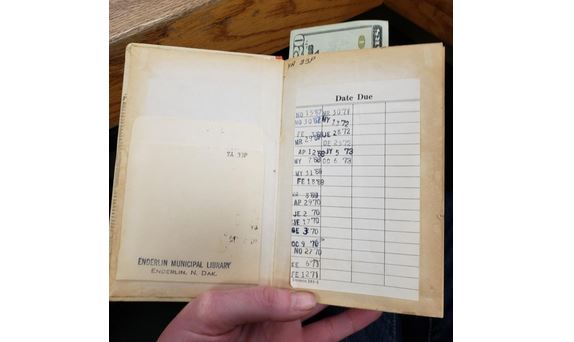 YA 33P
ENDERLIN MUNICIPAL LIBRARY
ENDERLIN, N. DAK.
Date Due
NO 15 '67
MR 30 '71
NO 30 '67
MR 29 '68
JE 28 '72
AP 12 '68
JY 5 '73
MY 7 '68
OC 6 '73
MY 31 '68
FE 18 '69
AP 29 '70
JE 2 '70
JE 17 '70
SE 3 '70
OC 9 '70
NO 27 '70
FE 12 '71